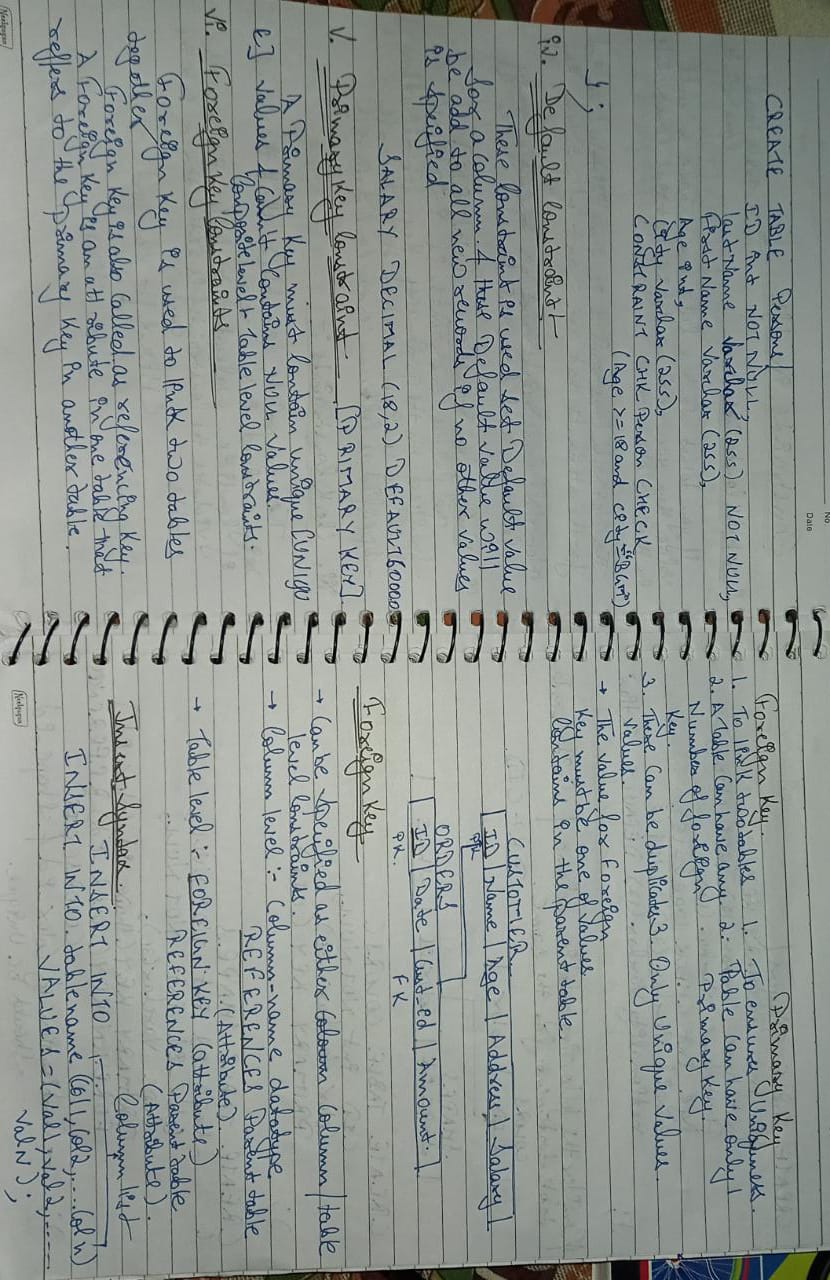 No.
Date
CREATE TABLE Persons(
ID int NOT NULL,
last Name Varchar (255) NOT NULL,
First Name Varchar (255),
Age int,
City Varchar (255),
CONSTRAINT CHK Person CHECK
(Age >= 18 and city = "BGM")
);
iv. Default Constraint
These Constraint is used set Default value
for a column. & these Default value will
be add to all new records if no other values
is specified
SALARY DECIMAL (18,2) DEFAULT 60000
V. Primary Key Constraint [PRIMARY KEY]
A Primary Key must Contain unique [UNIQU
E] Values & Can't Contains NULL Values.
Composite level + Table level Constraints.
Vi. Foreign Key Constraints
Foreign Key is used to link two tables
together
Foreign Key is also Called as referencing Key.
A Foreign Key is an attribute in one table that
reffers to the primary Key in another table.
Neelgagan
Foreign Key.
1. To link two tables
2. A Table Can have any
Number of foreign
Key.
3. There Can be duplicates
values.
Primary Key
1. To ensures Uniquness.
2. Table Can have only 1
Primary Key.
3. Only Unique Values.
→ The Value for Foreign
Key must be one of values
Contains in the parent table.
CUSTOMER
ID | Name | Age | Address | Salary
PK
ORDERS
ID | Date | Cust_id | Amount.
PK. FK
Foreign Key
→ Can be specified as either Column / table
level Constraints.
→ Column level :- Column-name datatype
REFERENCES Parent table
(Attribute).
→ Table level :- FOREIGN KEY (attribute)
REFERENCES Parent table
(Attribute).
Insert Syntax.
Column list
INSERT INTO
INSERT INTO. tablename (Col1, Col2, ... Col n)
VALUES = (Val1, Val2, ......
ValN);
Neelgagan